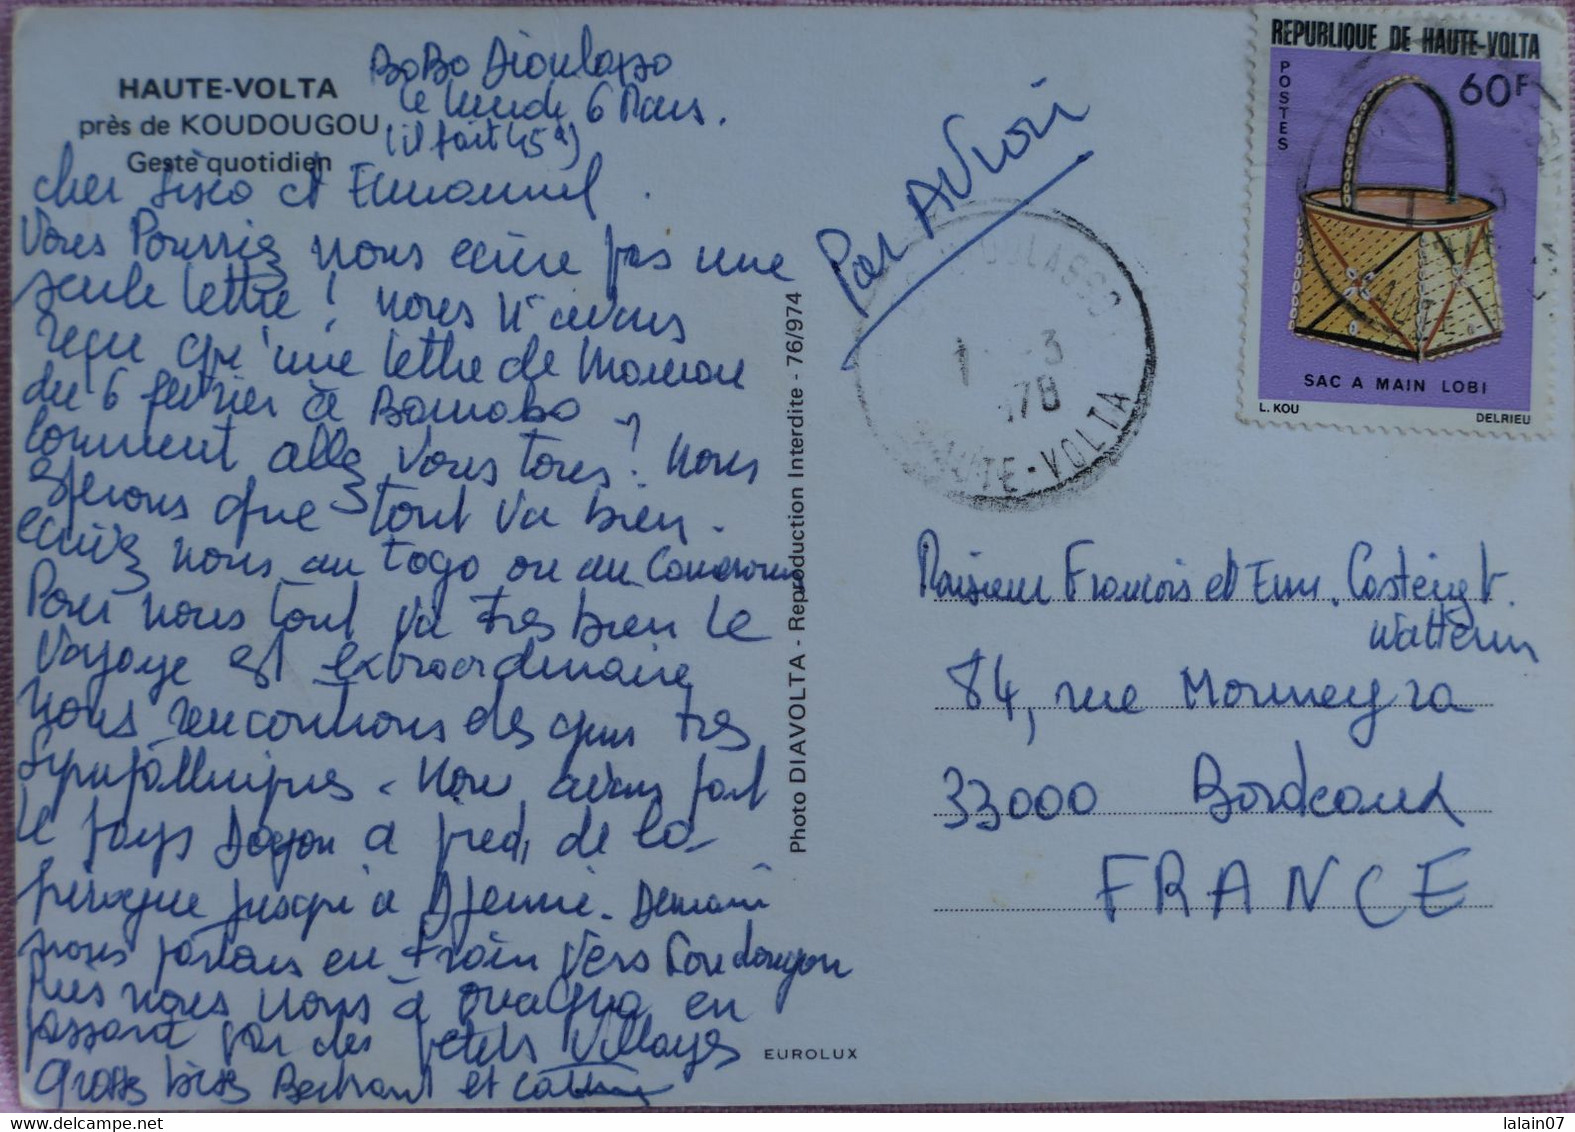 HAUTE-VOLTA
près de KOUDOUGOU
Geste quotidien
BOBO Dioulasso
le lundi 6 Mars.
(il fait 45°)
cher Sisco et Emmanuel.
Vous Pourriez nous ecrire pas une
seule lettre ! nous n'avons
reçu qu'une lettre de Maman
du 6 fevrier à Bamako
Comment allez vous tous ? nous
esperons que tout va bien.
ecrivez nous au Togo ou au Cameroun
Pour nous tout va tres bien le
voyage est extraordinaire
nous rencontrons des gens tres
sympathiques - nous avons fait
le pays Dogon a pied, de la
pirogue jusqu'à Djenné. Demain
nous partons en train vers Koudougou
puis nous irons à Ouagua en
passant par des petits villages
grosses bises Bertrand et Catherine
Photo DIAVOLTA - Reproduction Interdite - 76/974
EUROLUX
Par AVion
DIOULASSO
1 -3
78
HAUTE-VOLTA
REPUBLIQUE DE HAUTE-VOLTA
POSTES
60F
SAC A MAIN LOBI
L. KOU
DELRIEU
Monsieur François et Emm.
84, rue Mouneyra
33000 Bordeaux
FRANCE
lalain07